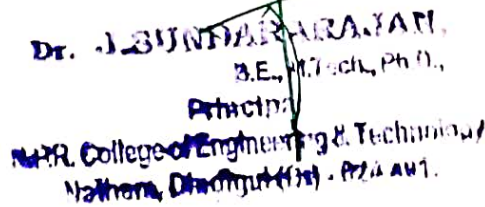 Dr. J.SUNDARARAJAN,
B.E., M.Tech., Ph.D.,
Principal
N.P.R. College of Engineering & Technology
Natham, Dindigul (Dt) -